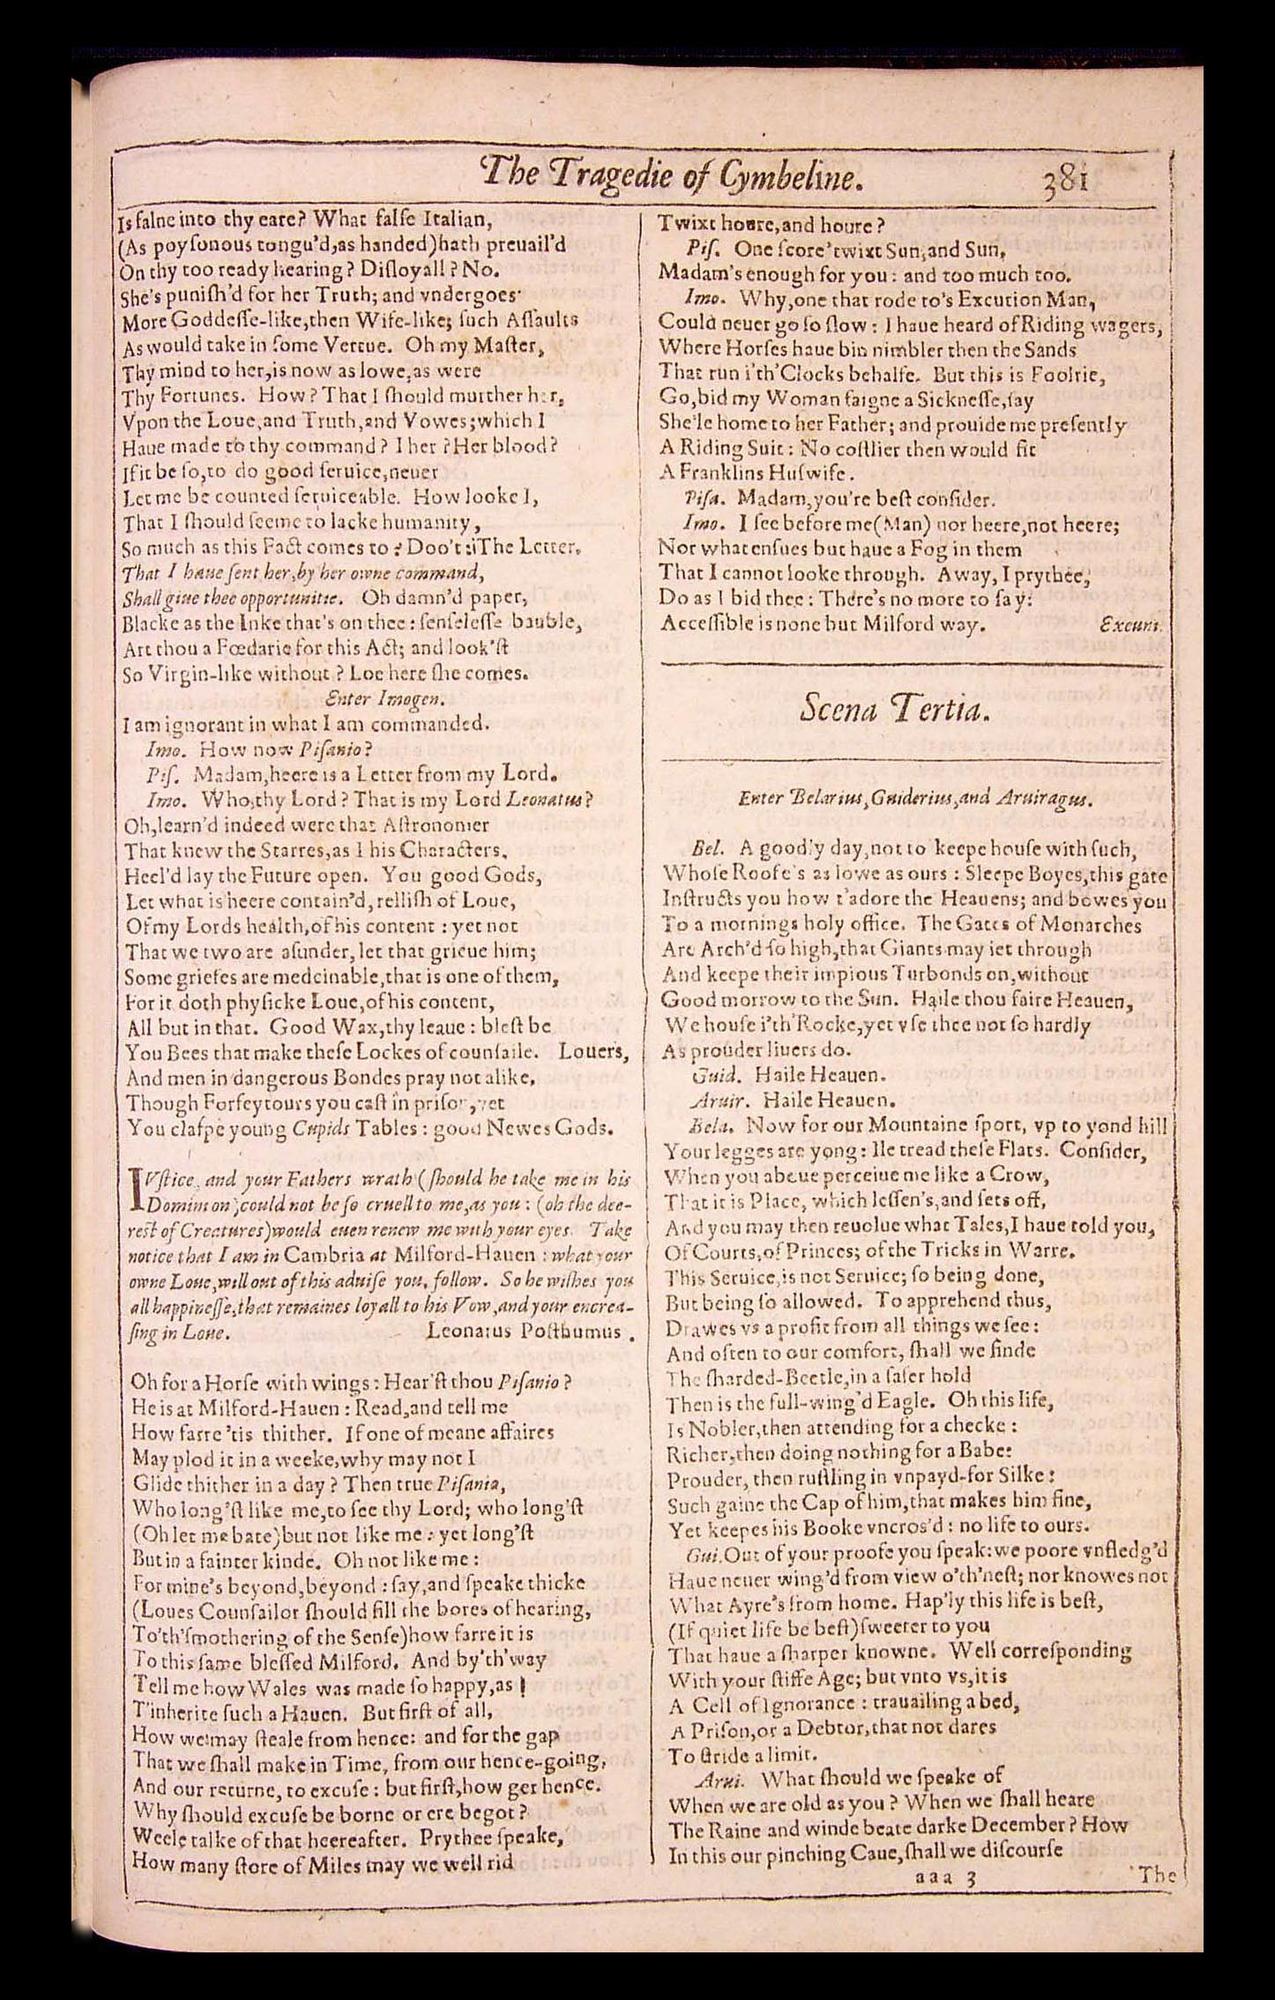 The Tragedie of Cymbeline.
381
Is falne into thy eare? What falſe Italian,
(As poyſonous tongu'd,as handed)hath preuail'd
On thy too ready hearing? Diſloyall? No.
She's puniſh'd for her Truth; and vndergoes
More Goddeſſe-like,then Wife-like; ſuch Aſſaults
As would take in ſome Vertue. Oh my Maſter,
Thy mind to her,is now as lowe,as were
Thy Fortunes. How? That I ſhould murther her,
Vpon the Loue,and Truth,and Vowes;which I
Haue made to thy command? I her? Her blood?
If it be ſo,to do good ſeruice,neuer
Let me be counted ſeruiceable. How looke I,
That I ſhould ſeeme to lacke humanity,
So much as this Fact comes to? Doo't: The Letter.
That I haue ſent her,by her owne command,
Shall giue thee opportunitie. Oh damn'd paper,
Blacke as the Inke that's on thee: ſenſeleſſe bauble,
Art thou a Fœdarie for this Act; and look'ſt
So Virgin-like without? Loe here ſhe comes.
Enter Imogen.
I am ignorant in what I am commanded.
Imo. How now Piſanio?
Piſ. Madam,heere is a Letter from my Lord.
Imo. Who,thy Lord? That is my Lord Leonatus?
Oh,learn'd indeed were that Aſtronomer
That knew the Starres,as I his Characters,
Heel'd lay the Future open. You good Gods,
Let what is heere contain'd, relliſh of Loue,
Of my Lords health,of his content: yet not
That we two are aſunder, let that grieue him;
Some griefes are medcinable,that is one of them,
For it doth phyſicke Loue,of his content,
All but in that. Good Wax,thy leaue: bleſt be
You Bees that make theſe Lockes of counſaile. Louers,
And men in dangerous Bondes pray not alike,
Though Forfeytours you caſt in priſon,yet
You claſpe young Cupids Tables: good Newes Gods.
IVſtice, and your Fathers wrath (ſhould he take me in his
Dominion)could not be ſo cruell to me,as you: (oh the dee-
reſt of Creatures)would euen renew me with your eyes. Take
notice that I am in Cambria at Milford-Hauen: what your
owne Loue,will out of this aduiſe you, follow. So he wiſhes you
all happineſſe,that remaines loyall to his Vow,and your encrea-
ſing in Loue.
Leonatus Poſthumus.
Oh for a Horſe with wings: Hear'ſt thou Piſanio?
He is at Milford-Hauen: Read,and tell me
How farre 'tis thither. If one of meane affaires
May plod it in a weeke,why may not I
Glide thither in a day? Then true Piſanio,
Who long'ſt like me,to ſee thy Lord; who long'ſt
(Oh let me bate)but not like me: yet long'ſt
But in a fainter kinde. Oh not like me:
For mine's beyond,beyond: ſay,and ſpeake thicke
(Loues Counſailor ſhould fill the bores of hearing,
To'th'ſmothering of the Senſe)how farre it is
To this ſame bleſſed Milford. And by'th'way
Tell me how Wales was made ſo happy,as
T'inherite ſuch a Hauen. But firſt of all,
How we may ſteale from hence: and for the gap
That we ſhall make in Time, from our hence-going,
And our returne, to excuſe: but firſt,how get hence.
Why ſhould excuſe be borne or ere begot?
Weele talke of that heereafter. Prythee ſpeake,
How many ſtore of Miles may we well rid
Twixt houre,and houre?
Piſ. One ſcore'twixt Sun,and Sun,
Madam's enough for you: and too much too.
Imo. Why,one that rode to's Excution Man,
Could neuer go ſo ſlow: I haue heard of Riding wagers,
Where Horſes haue bin nimbler then the Sands
That run i'th'Clocks behalfe. But this is Foolrie,
Go,bid my Woman faigne a Sickneſſe,ſay
She'le home to her Father; and prouide me preſently
A Riding Suit: No coſtlier then would fit
A Franklins Huſwife.
Piſa. Madam,you're beſt conſider.
Imo. I ſee before me(Man) nor heere,not heere;
Nor what enſues but haue a Fog in them
That I cannot looke through. Away, I prythee,
Do as I bid thee: There's no more to ſay:
Acceſſible is none but Milford way.
Exeunt.
Scena Tertia.
Enter Belarius,Guiderius,and Aruiragus.
Bel. A goodly day,not to keepe houſe with ſuch,
Whoſe Roofe's as lowe as ours: Sleepe Boyes,this gate
Inſtructs you how t'adore the Heauens; and bowes you
To a mornings holy office. The Gates of Monarches
Are Arch'd ſo high,that Giants may iet through
And keepe their impious Turbonds on,without
Good morrow to the Sun. Haile thou faire Heauen,
We houſe i'th'Rocke,yet vſe thee not ſo hardly
As prouder liuers do.
Guid. Haile Heauen.
Aruir. Haile Heauen.
Bela. Now for our Mountaine ſport, vp to yond hill
Your legges are yong: Ile tread theſe Flats. Conſider,
When you aboue perceiue me like a Crow,
That it is Place, which leſſen's,and ſets off,
And you may then reuolue what Tales,I haue told you,
Of Courts,of Princes; of the Tricks in Warre.
This Seruice,is not Seruice; ſo being done,
But being ſo allowed. To apprehend thus,
Drawes vs a profit from all things we ſee:
And often to our comfort, ſhall we finde
The ſharded-Beetle,in a ſafer hold
Then is the full-wing'd Eagle. Oh this life,
Is Nobler,then attending for a checke:
Richer,then doing nothing for a Babe:
Prouder, then ruſtling in vnpayd-for Silke:
Such gaine the Cap of him,that makes him fine,
Yet keepes his Booke vncros'd: no life to ours.
Gui.Out of your proofe you ſpeak:we poore vnfledg'd
Haue neuer wing'd from view o'th'neſt; nor knowes not
What Ayre's from home. Hap'ly this life is beſt,
(If quiet life be beſt)ſweeter to you
That haue a ſharper knowne. Well correſponding
With your ſtiffe Age; but vnto vs,it is
A Cell of Ignorance: trauailing a bed,
A Priſon,or a Debtor,that not dares
To ſtride a limit.
Arui. What ſhould we ſpeake of
When we are old as you? When we ſhall heare
The Raine and winde beate darke December? How
In this our pinching Caue,ſhall we diſcourſe
aaa 3
The